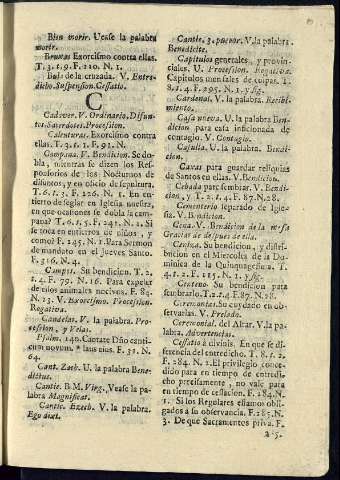 Bien morir. Uease la palabra
morir.
Bruxas Exorcismo contra ellas.
T. 3. t. 9. F. 110. N. 1.
Bula de la cruzada. V. Entre-
dicho. Suspension. Cessatio.
C
Cadaver. V. Ordinario. Difun-
tos. Sacerdotes. Procession.
Calenturas. Exorcismo contra
ellas. T. 3. t. 1. F. 91. N.
Campana. V. Bendicion. Se do-
bla, mientras se dizen los Res-
ponsorios de los Nocturnos de
difuntos, y en oficio de sepultura.
T. 6. t. 3. F. 126. N. 1. En en-
tierro de seglar en Iglesia nuestra,
en que ocasiones se dobla la cam-
pana? T. 6. t. 5. F. 241. N. 2. Si
se toca en entierros de niños, y
como? F. 245. N. 1. Para Sermon
de mandato en el jueves Santo.
F. 316. N. 4.
Campos. Su bendicion. T. 2.
t. 4. F. 79. N. 16. Para expeler
de ellos animales nocivos. F. 84.
N. 23. V. Exorcismo. Procession.
Rogativa.
Candelas. V. la palabra. Pro-
cession, y Velas.
Psalm. 149. Cantate Dño canti-
cum novum. * laus eius. F. 31. N.
64.
Cant. Zach. U. la palabra Bene-
dictus.
Cantic. B. M. Virg. Vease la pa-
labra Magnificat.
Cantic. Ezech. V. la palabra.
Ego dixi.
Cantic. 3. pueror. V. la palabra.
Benedicite.
Capitulos generales, y provin-
ciales. U. Procession. Rogativa.
Capitulos mensales de culpas. T.
8. t. 4. F. 295. N. 1. y sig.
Cardenal. V. la palabra. Recibi-
miento.
Casa nueva. U. la palabra Ben-
dicion para casa inficionada de
contagio. V. Contagio.
Casulla. U. la palabra. Bendi-
cion.
Caxas para guardar reliquias
de Santos en ellas. V. Bendicion.
Cebada para sembrar. V. Bendi-
cion, y T. 2. t. 4. F. 87. N. 28.
Cementerio separado de Igle-
sia. V. Bendicion.
Cena. V. Bendicion de la mesa
Gracias de despues de ella.
Ceniza. Su bendicion, y distri-
bicion en el Miercoles de la Do-
minica de la Quinquagesima. T.
4. t. 2. F. 115. N. 1. y sig.
Centeno. Su bendicion para
sembrarlo. T. 2. t. 4. F. 87. N. 28.
Ceremonias. Su cuydado en ob-
servarlas. V. Prelado.
Ceremonial. del Altar. V. la pa-
labra. Advertencias.
Cessatio à divinis. En que se di-
ferencia del entredicho. T. 8. t. 2.
F. 284. N. 1. El privilegio conce-
dido para en tiempo de entredi-
cho precisamente, no vale para
en tiempo de cessacion. F. 284. N.
1. Si los Regulares estamos obli-
gados á su observancia. F. 285. N.
3. De que Sacramentos priva. F.